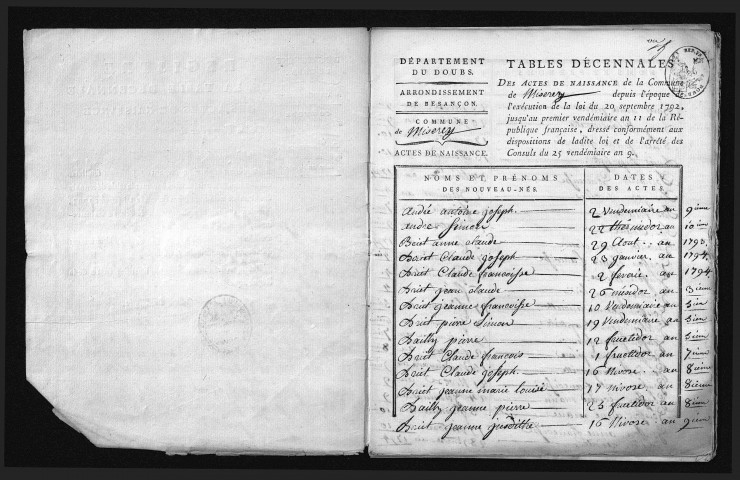 DÉPARTEMENT
DU DOUBS.
ARRONDISSEMENT
DE BESANÇON.
COMMUNE
de Miserey
ACTES DE NAISSANCE.
TABLES DÉCENNALES
DES ACTES DE NAISSANCE de la Commune
de Miserey depuis l'époque
l'exécution de la loi du 20 septembre 1792,
jusqu'au premier vendémiaire an 11 de la Ré-
publique française, dressé conformément aux
dispositions de ladite loi et de l'arrêté des
Consuls du 25 vendémiaire an 9.
NOMS ET PRÉNOMS
DES NOUVEAU-NÉS.
DATES
DES ACTES.
André antoine joseph 2 Vendemiaire an 9ième
andre Simon 22 thermidor an 10ième
anne claude 29 Aout .. an 1793.
Claude joseph 23 janvier. an 1794.
Claude francoisse 2 fevrie. an 1794
jean claude 26 an 3ième
jeanne francoisse 10 Vendemiaire an
pierre Simon 19 Vendemiaire an
Bailly pierre 12 fructidor an
Claude francois 1 fructidor an 7ième
Claude joseph 16 Nivose .. an 8ième
jeanne marie louise 17 Nivose. an 8ième
Bailly jeanne pierre 23 fructidor an 8ième
jeanne 16 Nivose : an 9ième